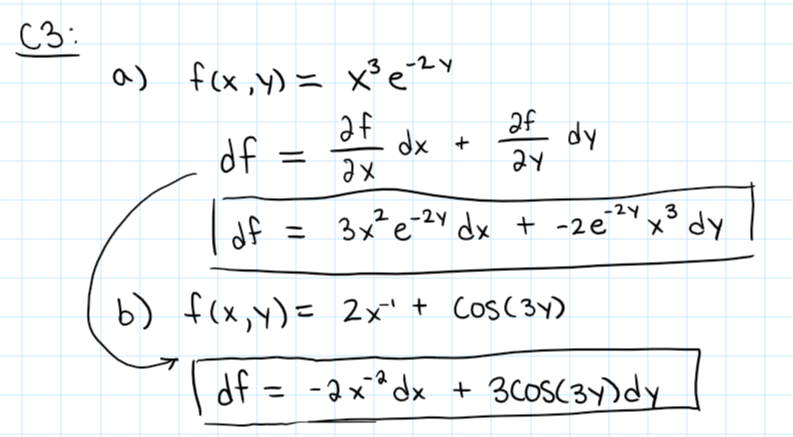 C3:
a) f(x,y) = x³e⁻²ʸ
df = ∂f/∂x dx + ∂f/∂y dy
df = 3x²e⁻²ʸ dx + -2e⁻²ʸ x³ dy
b) f(x,y) = 2x⁻¹ + cos(3y)
df = -2x⁻² dx + 3cos(3y)dy